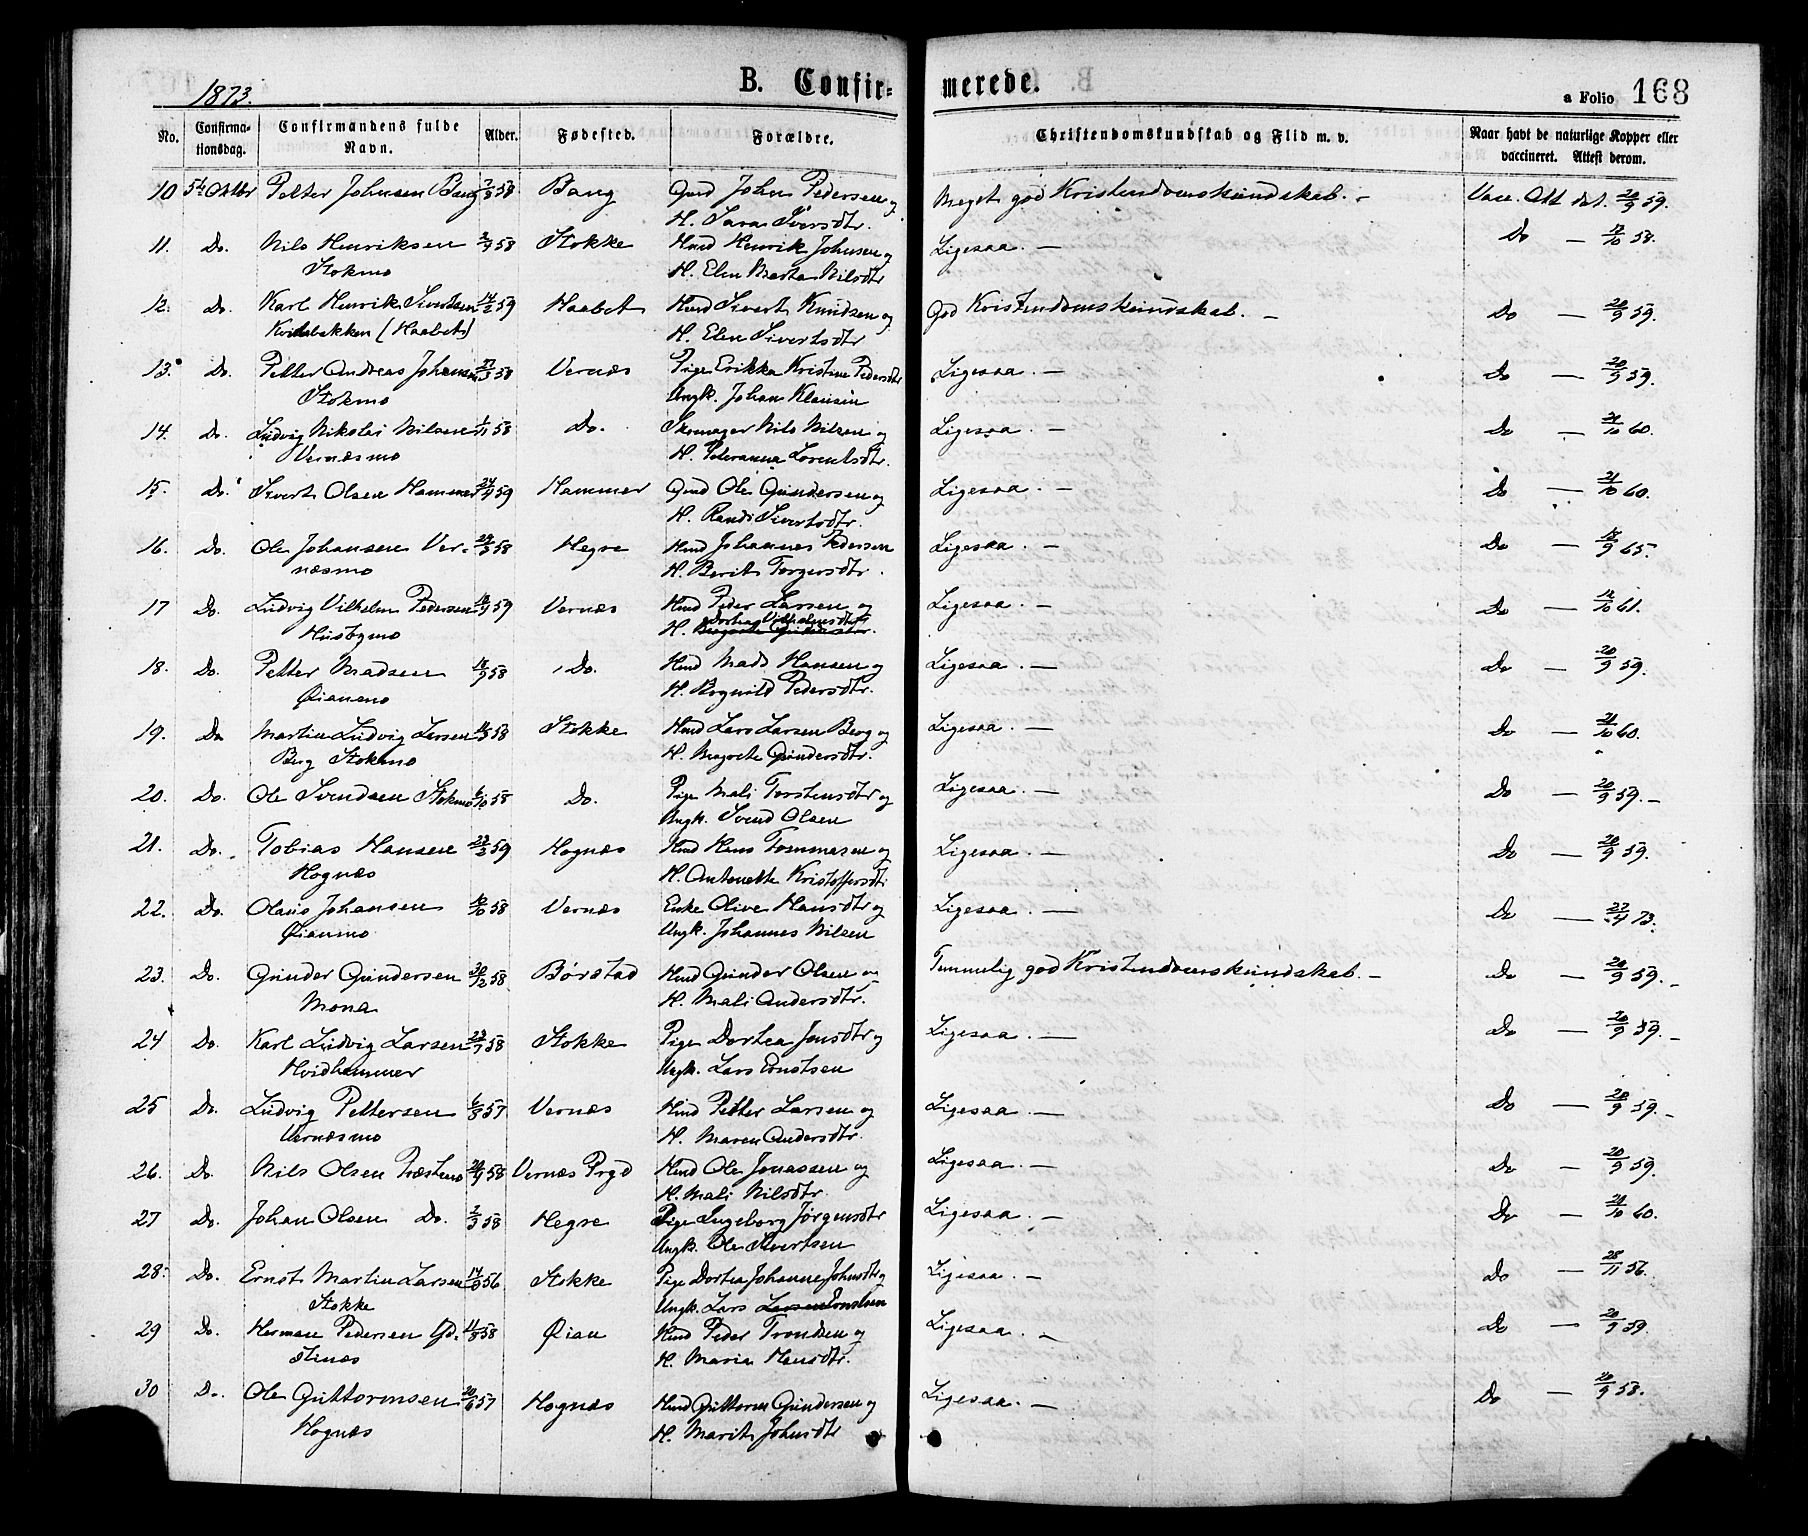 1873.
B. Confir-
merede.
a Folio 168
No.
Confirma-
tionsdag.
Confirmandens fulde
Navn.
Alder.
Fødested.
Forældre.
Christendomskundskab og Flid m. v.
Naar havt de naturlige Kopper eller
vaccineret. Attest derom.
10 5te Oktbr Petter Johnsen Bang 58 Bang Gmd John Pedersen og Meget god Kristendomskundskab. - Vacc. Att dat. 20/9 59.
H. Sara Iversdtr.
11. Do. Nils Henriksen 2/9 58 Stokke Hmd Henrik Johnsen og Ligesaa. — Do — 17/10 58.
Stokmo H. Elen Marta Nilsdtr
12. Do. Karl Henrik Sivertsen 14/2 59 Haabet Hmd Sivert Knudsen og God Kristendomskundskab. — Do — 20/9 59.
Kvidebakken (Haabet) H. Elen Sivertsdtr
13. Do. Petter Andreas Johansen 58 Vernæs Pige Erikka Kristine Pedersdtr Ligesaa. — Do — 20/9 59.
Stokmo Ungk. Johan Klausen
14. Do. Ludvig Nikolai Nilsen 1/11 58 Do. Skomager Nils Nilsen og Ligesaa — Do — 21/10 60.
Vernæsmo H. Peteranna Lorentsdtr.
15. Do. Sivert Olsen Hammer 24/4 59 Hammer Gmd Ole Gundersen og Ligesaa. — Do — 21/10 60.
H. Randi Sivertsdtr.
16. Do. Ole Johansen Ver- 58 Hegre Hmd Johannes Pedersen Ligesaa. — Do — 18/9 65.
næsmo H. Berit Torgersdtr.
17 Do. Ludvig Vilhelm Pedersen 59 Vernæs Hmd Peder Larsen og Ligesaa. — Do — 61.
Husbymo H. Dortea Vilhelmsdtr
18. Do. Petter Madsen 18/9 58 Do. Hmd Mads Hansen og Ligesaa. — Do — 20/9 59.
Øianmo H. Bognild Pedersdtr.
19. Do Martin Ludvig Larsen 58 Stokke Hmd Lars Larsen Berg og Ligesaa. — Do — 21/10 60.
Berg Stokmo H. Magrete Gundersdtr.
20. Do. Ole Svendsen Stokmo 6/10 58 Do. Pige Mali Torstensdtr og Ligesaa. — Do — 20/9 59. -
Ungk. Svend Olsen
21. Do. Tobias Hansen 23/2 59 Hognæs Hmd Hans Tommasen og Ligesaa. — Do — 20/9 59.
Hognæs H. Antonette Kristoffersdtr
22. Do. Olaus Johansen 58 Vernæs Enke Olive Hansdtr og Ligesaa. — Do — 27/4 73.
Øianmo Ungk. Johannes Nilsen
23. Do. Gunder Gundersen 58 Børstad Hmd Gunder Olsen og Temmelig god Kristendomskundskab. - Do — 20/9 59. -
Mona H. Mali Andersdtr.
24 Do. Karl Ludvig Larsen 58 Stokke Pige Dortea Jonsdtr og Ligesaa. — Do — 20/9 59. -
Hvidhammer Ungk. Lars Ernstsen
25 Do. Ludvig Pettersen 57 Vernæs Hmd Petter Larsen og Ligesaa. — Do — 20/9 59. -
Vernæsmo H. Maren Andersdtr.
26. Do. Nils Olsen Præstmo 58 Vernæs Prgd Hmd Ole Jonassen og Ligesaa. — Do — 20/9 59.
H. Mali Nilsdtr.
27 Do. Johan Olsen Do. 2/3 58 Hegre Pige Ingeborg Jørgensdtr Ligesaa. — Do — 21/10 60.
Ungk. Ole Sivertsen
28. Do. Ernst Martin Larsen 56 Stokke Pige Dortea Johanne Johnsdtr og Ligesaa. — Do — 28/11 56.
Stokke Ungk. Lars Larsen Ernstsen
29 Do. Herman Pedersen Gd. 58 Øian Hmd Peder Trondsen og Ligesaa. — Do — 20/9 59.
stinæs H. Maria Hansdtr.
30 Do. Ole Guttormsen 57 Hognæs Hmd Guttorm Gundersen og Ligesaa. — Do — 58.
Hognæs H. Marit Johnsdtr